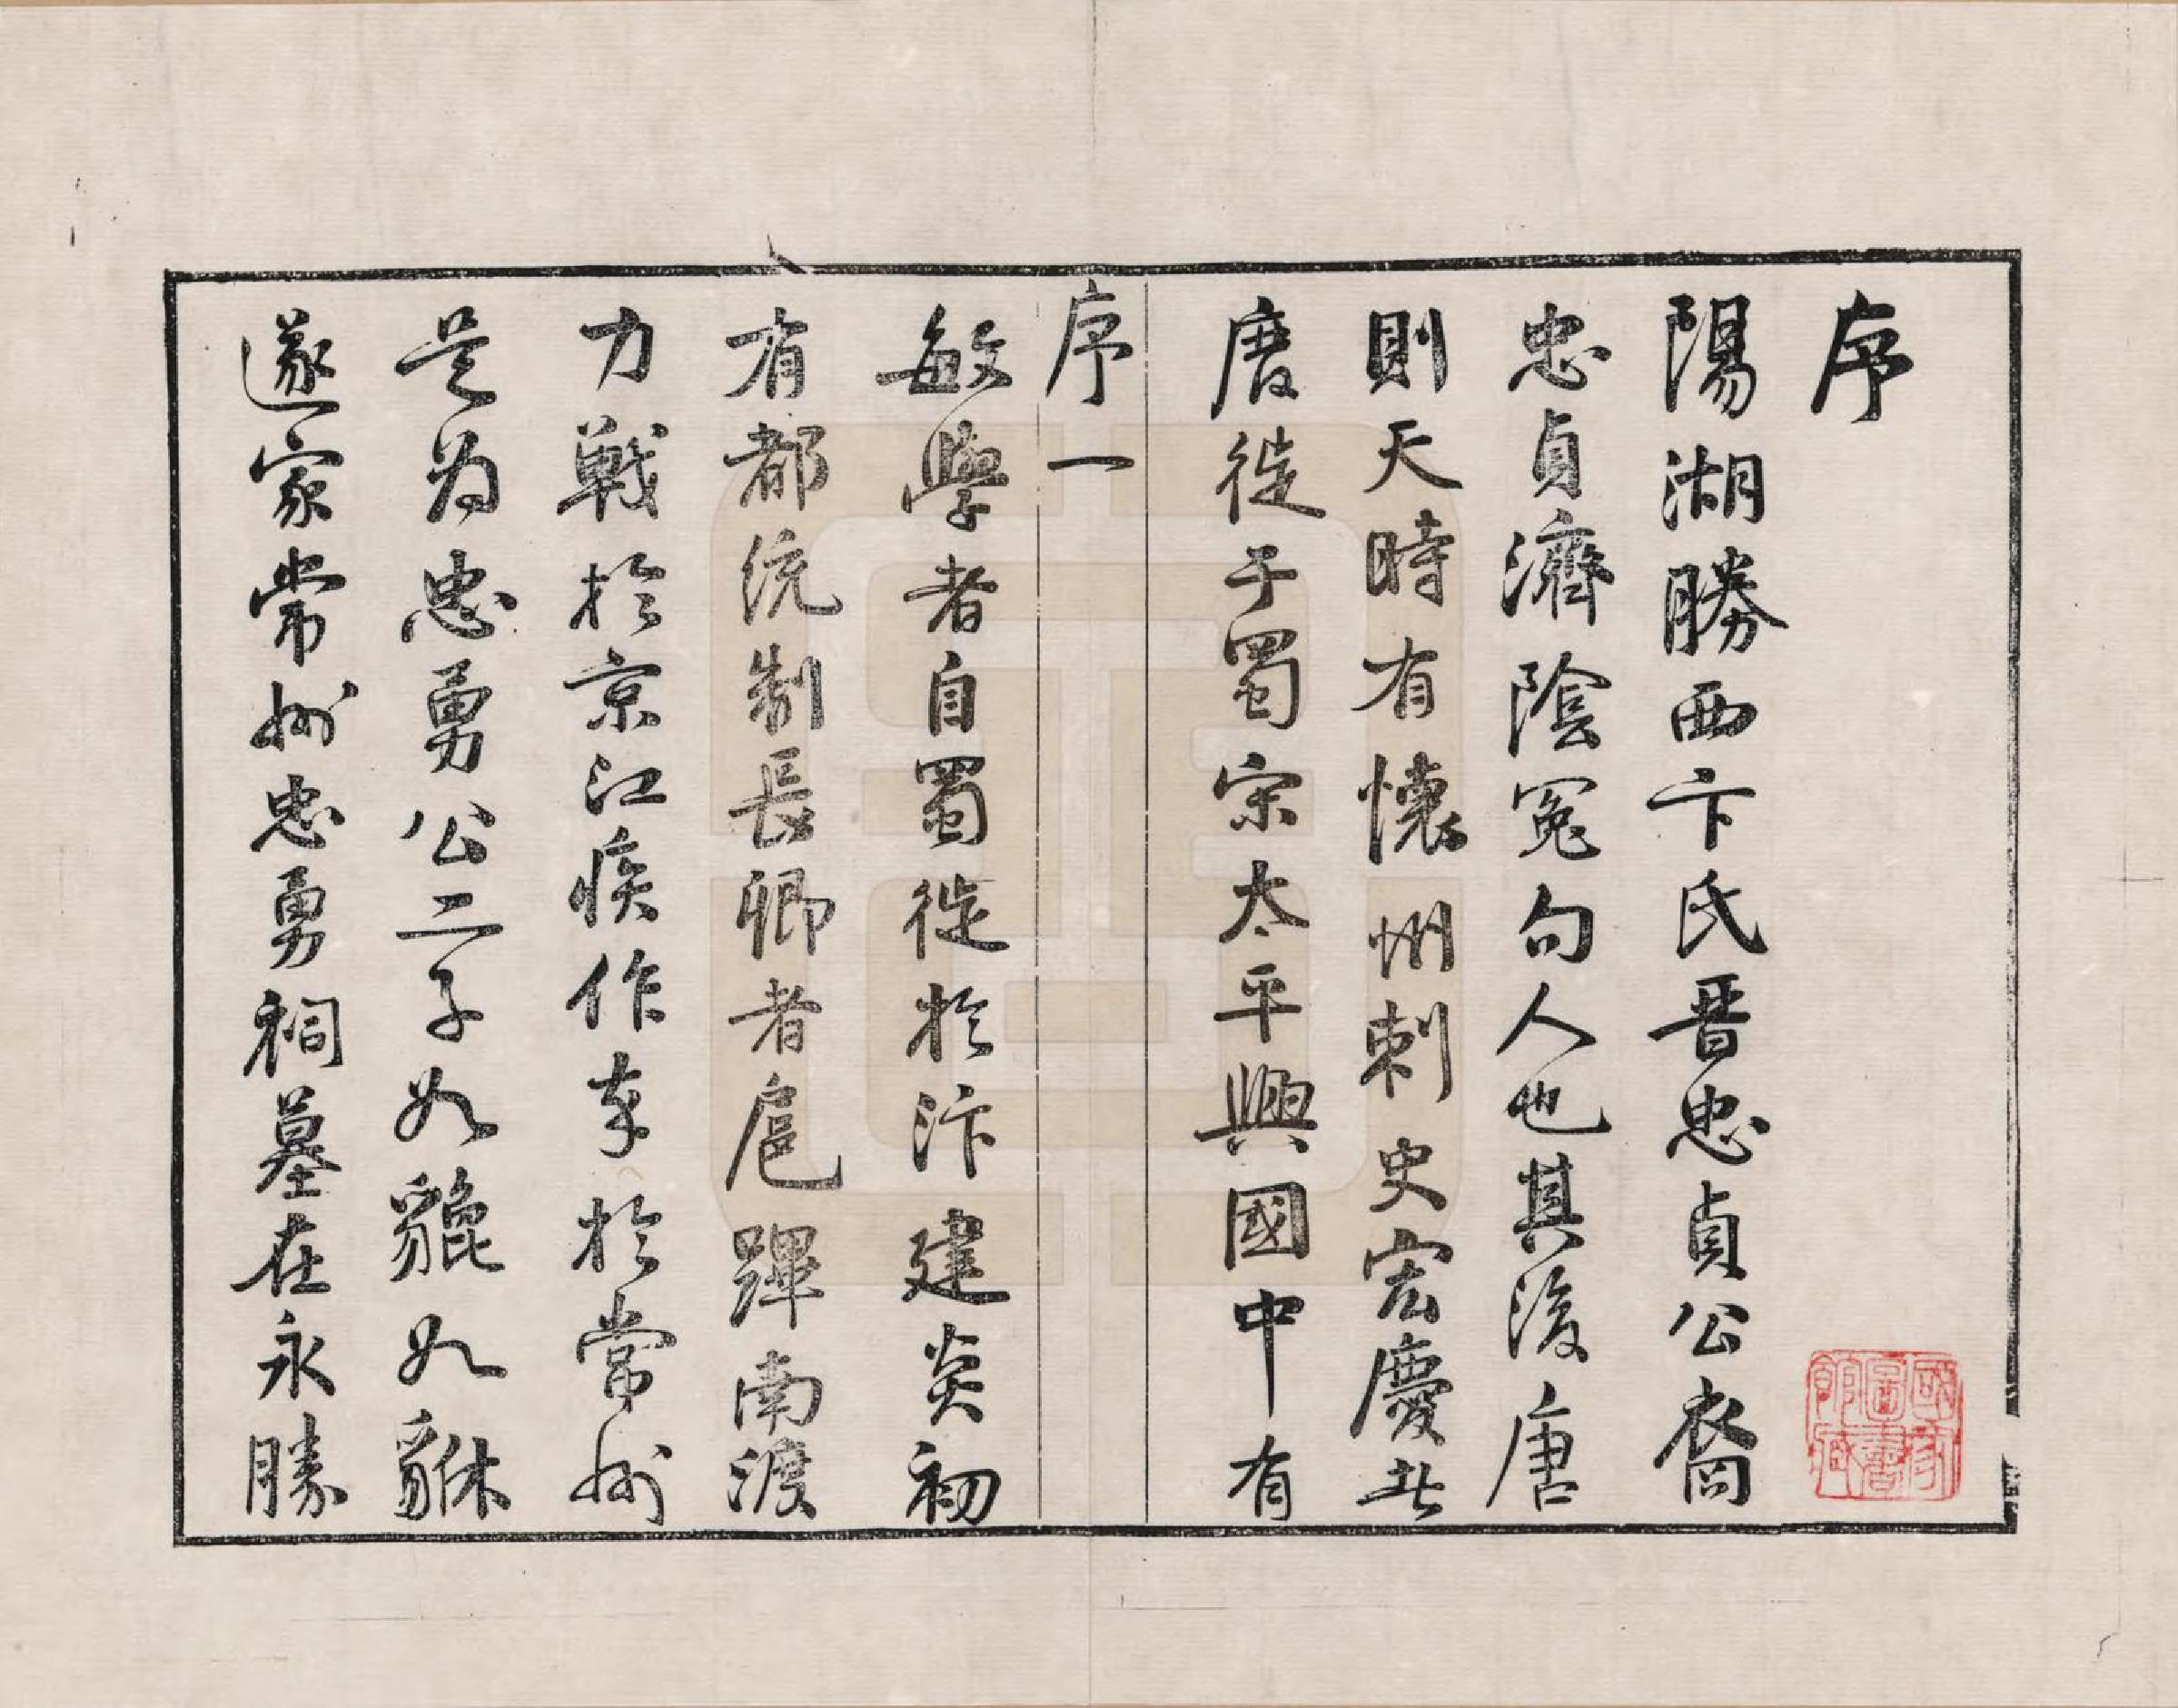 序
陽湖勝西卞氏晉忠貞公裔
忠貞濟陰冤句人也其後唐
則天時有懷州刺史宏慶北
唐徙于蜀宋太平興國中有
序一
敏學者自蜀徙於汴建炎初
有都統制長卿者扈蹕南渡
力戰於京江疾作卒於常州
是為忠勇公二子如貔如貅
遂家常州忠勇祠墓在永勝
國家
圖書
館藏